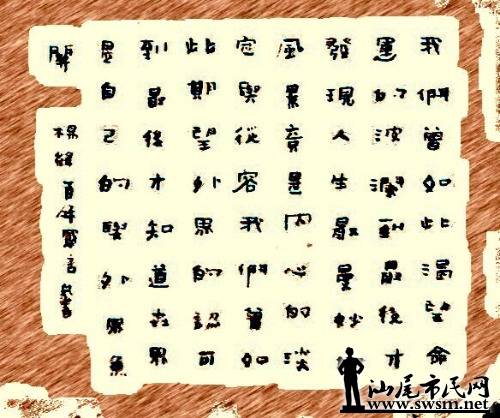 我們曾如此渴望命
運的波瀾到最後才
發現人生最曼妙
風景竟是內心的淡
定與從容我們曾如
此期望外界的認可
到最後才知道世界
是自己的與外界無
關
楊絳百年感言
汕尾市民网
www.swsm.net